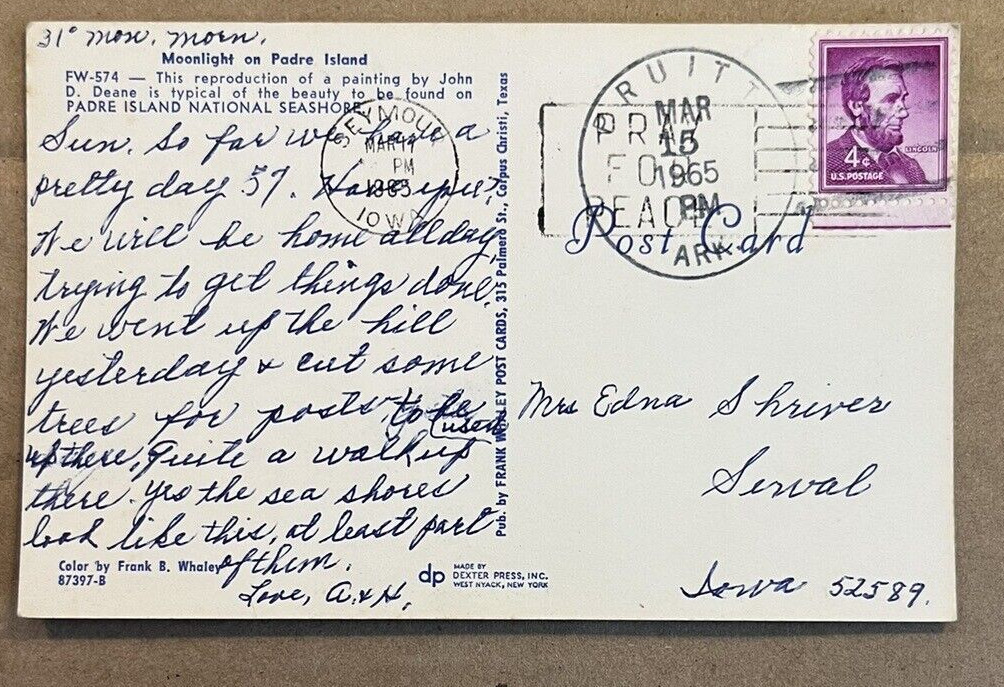 31° Mon. Morn.
Moonlight on Padre Island
FW-574 — This reproduction of a painting by John
D. Deane is typical of the beauty to be found on
PADRE ISLAND NATIONAL SEASHORE.
Sun. so far we have a
pretty day 57. Have you?
We will be home all day,
trying to get things done.
We went up the hill
yesterday & cut some
trees for posts, to be
used
up there, Quite a walk up
there. Yes the sea shores
look like this, at least part
of them.
Love, A. & H.
Color by Frank B. Whaley
87397-B
dp
MADE BY
DEXTER PRESS, INC.
WEST NYACK, NEW YORK
Pub. by FRANK WHALEY POST CARDS, 315 Palmero St., Corpus Christi, Texas
SEYMOUR
MAR
PM
IOWA
PRUITT
MAR
15
1965
PM
ARK
PRAY
FOR
PEACE
LINCOLN
4¢
U.S. POSTAGE
Post Card
Mrs Edna Shriver
Serval
Iowa 52589.